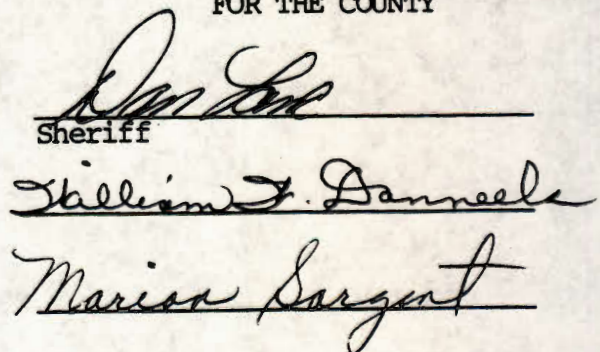 FOR THE COUNTY
Dan Love
Sheriff
William F. Danneels
Marion Sargent